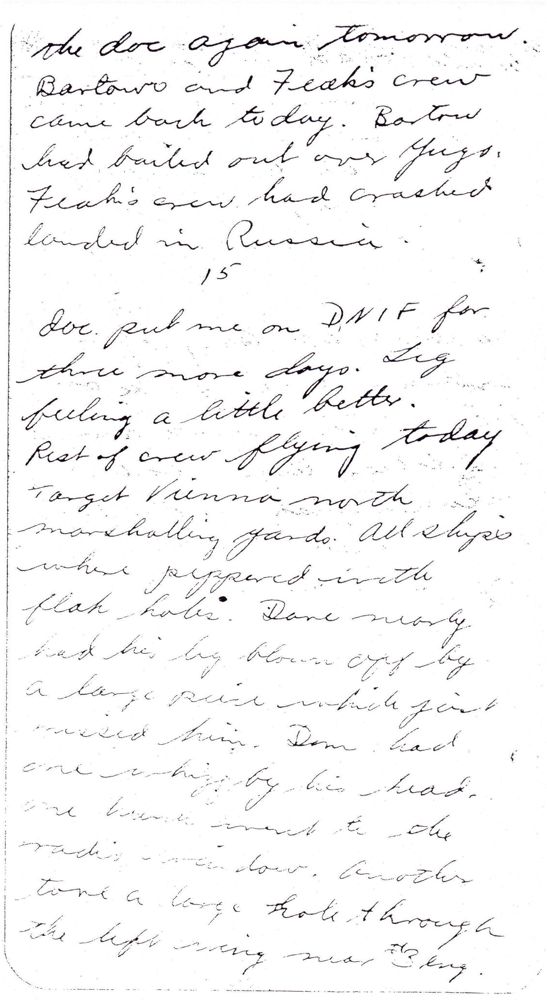 the doc again tomorrow.
Bartow and Feak's crew
came back today. Bartow
had bailed out over Yugo.
Feak's crew had crashed
landed in Russia.
15
doc. put me on D.N.I.F for
three more days. Leg
feeling a little better.
Rest of crew flying today
Target Vienna north
marshalling yards. All ships
where peppered with
flak holes. Dave nearly
had his leg blown off by
a large peice which just
missed him. Dom had
one whizz by his head.
one went to the
radio window. Another
tore a large hole through
the left wing near #3 eng.